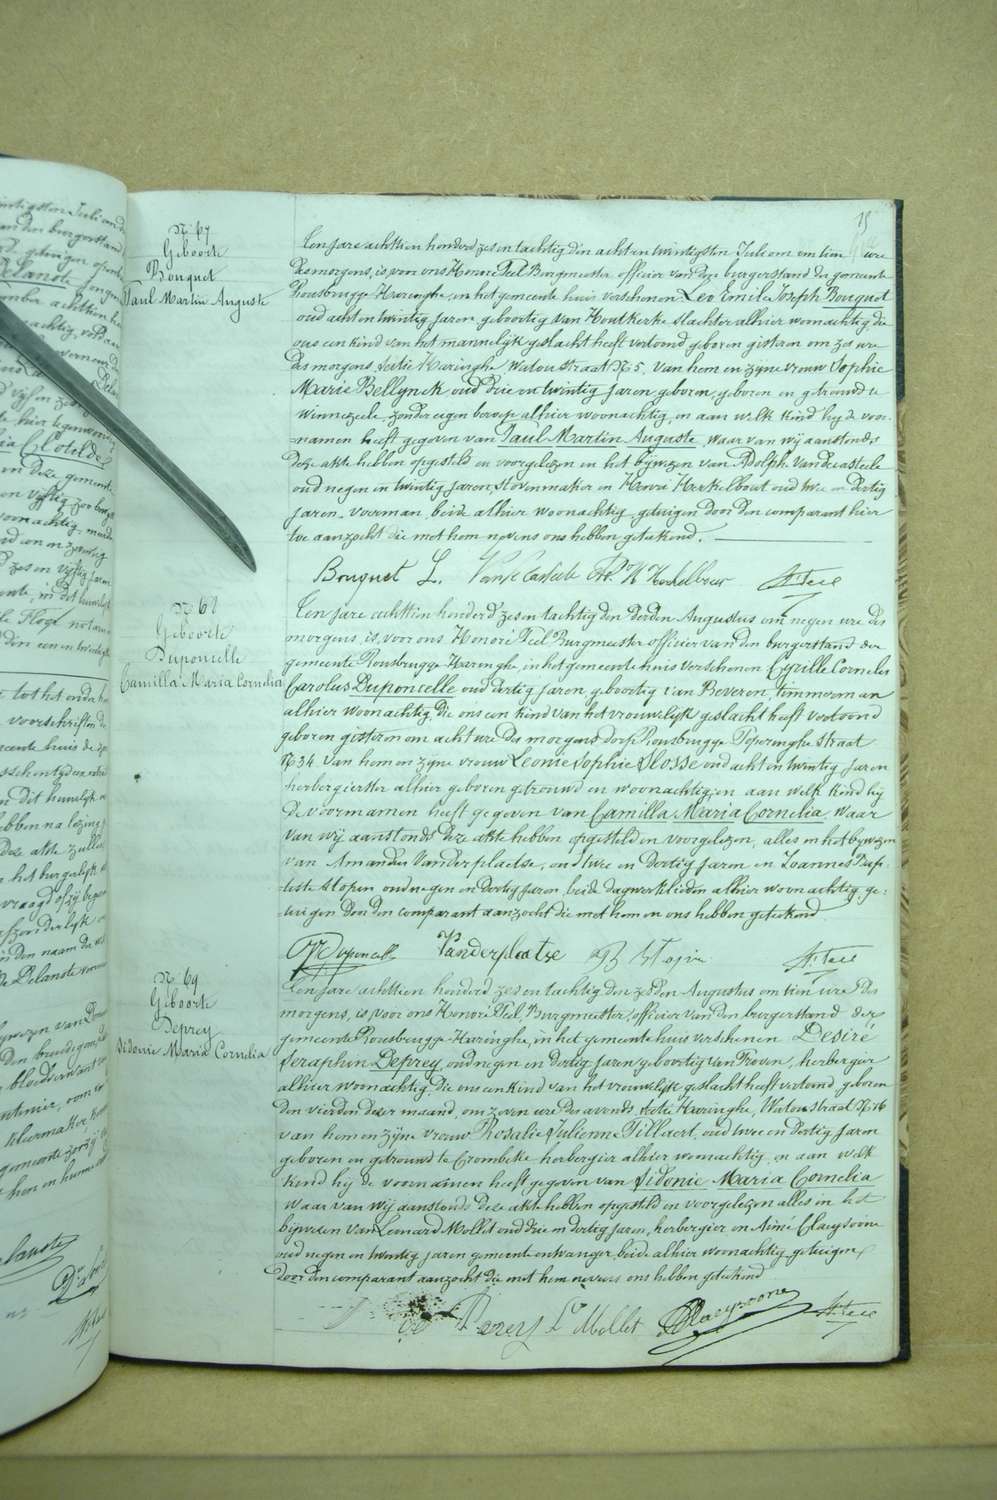 19
N 67
Geboorte
Bouquet
Paul Martin Auguste
Een jare achttien honderd zes en tachtig den acht en twintigsten Juli om tien ure
des morgens, is voor ons Honoré Feel Burgmeester officier van den burgerstand der gemeente
Rousbrugge Haringhe, in het gemeente huis verschenen Leo Emile Joseph Bouquet
oud acht en twintig jaren geboortig van Houtkerke slachter alhier woonachtig, die
ons een kind van het mannelijk geslacht heeft vertoond geboren gisteren om zes ure
des morgens sectie Haringhe, Watoustraat N 5, van hem en zyne vrouw Sophie
Marie Bellynck oud drie en twintig jaren geboren, geboren en getrouwd te
Winnezeele, zonder eigen beroep alhier woonachtig, en aan welk kind hy de voor
namen heeft gegeven van Paul Martin Auguste, waar van wij aanstonds
deze akte hebben opgesteld en voorgelezen en het bijwezen van Adolph Vandecasteele
oud negen en twintig jaren, stovenmaker en Henri Herkelbout oud twee en dertig
jaren, voerman, beide alhier woonachtig, getuigen door den comparant hier
toe aanzocht die met hem nevens ons hebben geteekend.
Bouquet L. Vande Casteele H. Feel
N 68
Geboorte
Duponcelle
Camilla Maria Cornelia
Een jare achttien honderd zes en tachtig den derden Augustus om negen ure des
morgens, is, voor ons Honoré Feel Burgmeester officier van den burgerstand der
gemeente Rousbrugge Haringhe, in het gemeente huis verschenen Cyrille Cornelis
Carolus Duponcelle oud dertig jaren, geboortig van Beveren, timmerman
alhier woonachtig, die ons een kind van het vrouwelijk geslacht heeft vertoond
geboren gisteren om acht ure des morgens dorp Rousbrugge Poperinghe straat
N 34 van hem en zyne vrouw Leonie Sophie Slosse oud acht en twintig jaren
herbergierster alhier geboren getrouwd en woonachtig, en aan welk kind hij
de voornamen heeft gegeven van Camilla Maria Cornelia, waar
van wij aanstonds deze akte hebben opgesteld en voorgelezen, alles in het bijwezen
van Amandus Vanderplaetse, oud twee en dertig jaren en Joannes Bap-
tiste Stopin oud negen en dertig jaren, beide dagwerklieden alhier woonachtig, ge-
tuigen door den comparant aanzocht die met hem en ons hebben geteekend
Duponcelle Vanderplaetse H. Feel
N 69
Geboorte
Deprey
Sidonie Maria Cornelia
Een jare achttien honderd zes en tachtig den zesden Augustus om tien ure des
morgens, is voor ons Honoré Feel, Burgmeester, officier van den burgerstand der
gemeente Rousbrugge Haringhe, in het gemeente huis verschenen Désiré
Seraphin Deprey, oud negen en dertig jaren, geboortig van Proven, herbergier
alhier woonachtig, die ons een kind van het vrouwelijk geslacht heeft vertoond, geboren
den vierden dezer maand, om zeven ure des avonds, sectie Haringhe, Watou straat N 76
van hem en zyne vrouw Rosalie Julienne Tillaert, oud twee en dertig jaren
geboren en getrouwd te Crombeke, herbergier alhier woonachtig, en aan welk
kind hij de voornamen heeft gegeven van Sidonie Maria Cornelia
waar van wij aanstonds deze akte hebben opgesteld en voorgelezen alles in het
bijwezen van Leonard Mollet oud drie en dertig jaren, herbergier en Aimé Claeysoone
oud negen en twintig jaren gemeente ontvanger, beide alhier woonachtig, getuigen
door den comparant aanzocht die met hem nevens ons hebben geteekend
L. Mollet Claeysoone H. Feel